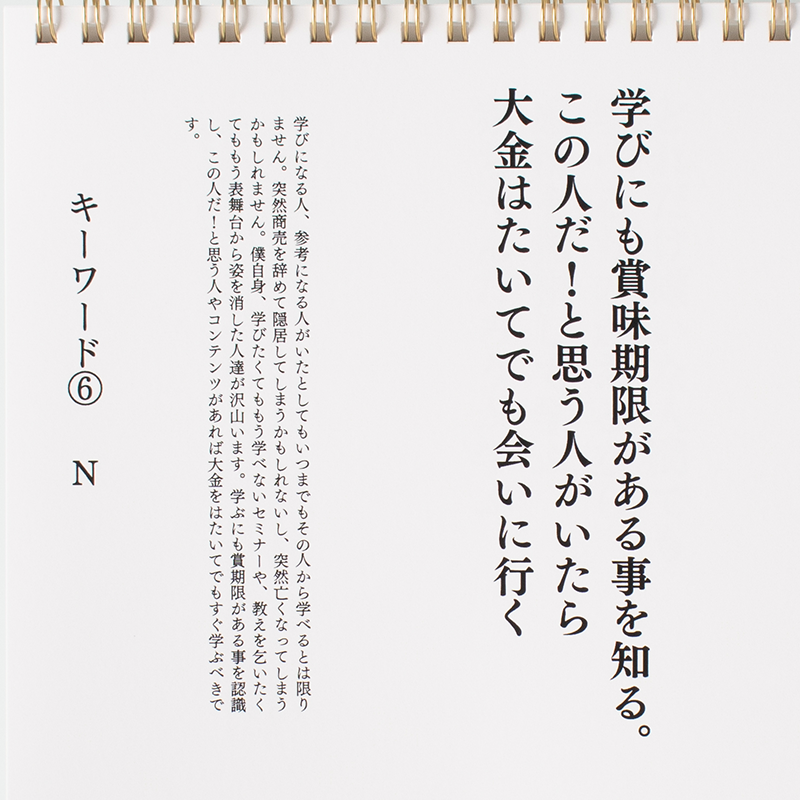 学びにも賞味期限がある事を知る。
この人だ！と思う人がいたら
大金はたいてでも会いに行く
学びになる人、参考になる人がいたとしてもいつまでもその人から学べるとは限り
ません。突然商売を辞めて隠居してしまうかもしれないし、突然亡くなってしまう
かもしれません。僕自身、学びたくてももう学べないセミナーや、教えを乞いたく
てももう表舞台から姿を消した人達が沢山います。学ぶにも賞期限がある事を認識
し、この人だ！と思う人やコンテンツがあれば大金をはたいてでもすぐ学ぶべきで
す。
キーワード⑥ N